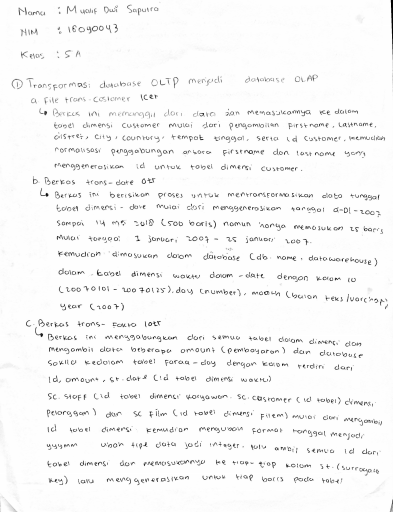 Nama : M Yusif Dwi Saputro
NIM : 18090043
Kelas : 5A
① Transformasi database OLTP menjadi database OLAP
a. File trans-customer
↳ Berkas ini memanggil dari data dan memasukannya ke dalam
tabel dimensi customer mulai dari pengambilan firstname, lastname,
district, city, country, tempat tinggal, serta id customer, kemudian
normalisasi penggabungan antara firstname dan lastname yang
menggenerasikan id untuk tabel dimensi customer.
b. Berkas trans-date
↳ Berkas ini berisikan proses untuk mentransformasikan data tunggal
tabel dimensi-date mulai dari menggenerasikan tanggal 01-01-2007
sampai 14 mei 2018 (500 baris) namun hanya memasukan 25 baris
mulai tanggal 1 januari 2007 - 25 januari 2007.
Kemudian dimasukan dalam database (db name: datawarehouse)
dalam tabel dimensi waktu dalam-date dengan kolom id
(20070101 - 20070125), day (number), month (bulan teks/varchar),
year (2007)
c. Berkas trans-fakta
↳ Berkas ini menggabungkan dari semua tabel dalam dimensi dan
mengambil data beberapa amount (pembayaran) dan database
sakila kedalam tabel -day dengan kolom terdiri dari
id, amount, st.date (id tabel dimensi waktu)
sc. staff (id tabel dimensi karyawan. sc. costromer (id tabel) dimensi
pelanggan) dan sc film (id tabel dimensi filem) mulai dari mengambil
id tabel dimensi kemudian mengubah format tanggal menjadi
yyymm ubah tipe data jadi integer, lalu ambil semua id dari
tabel dimensi dan memasukannya ke tiap-tiap kolom st. (surrogate
key) lalu menggenerasikan untuk tiap baris pada tabel